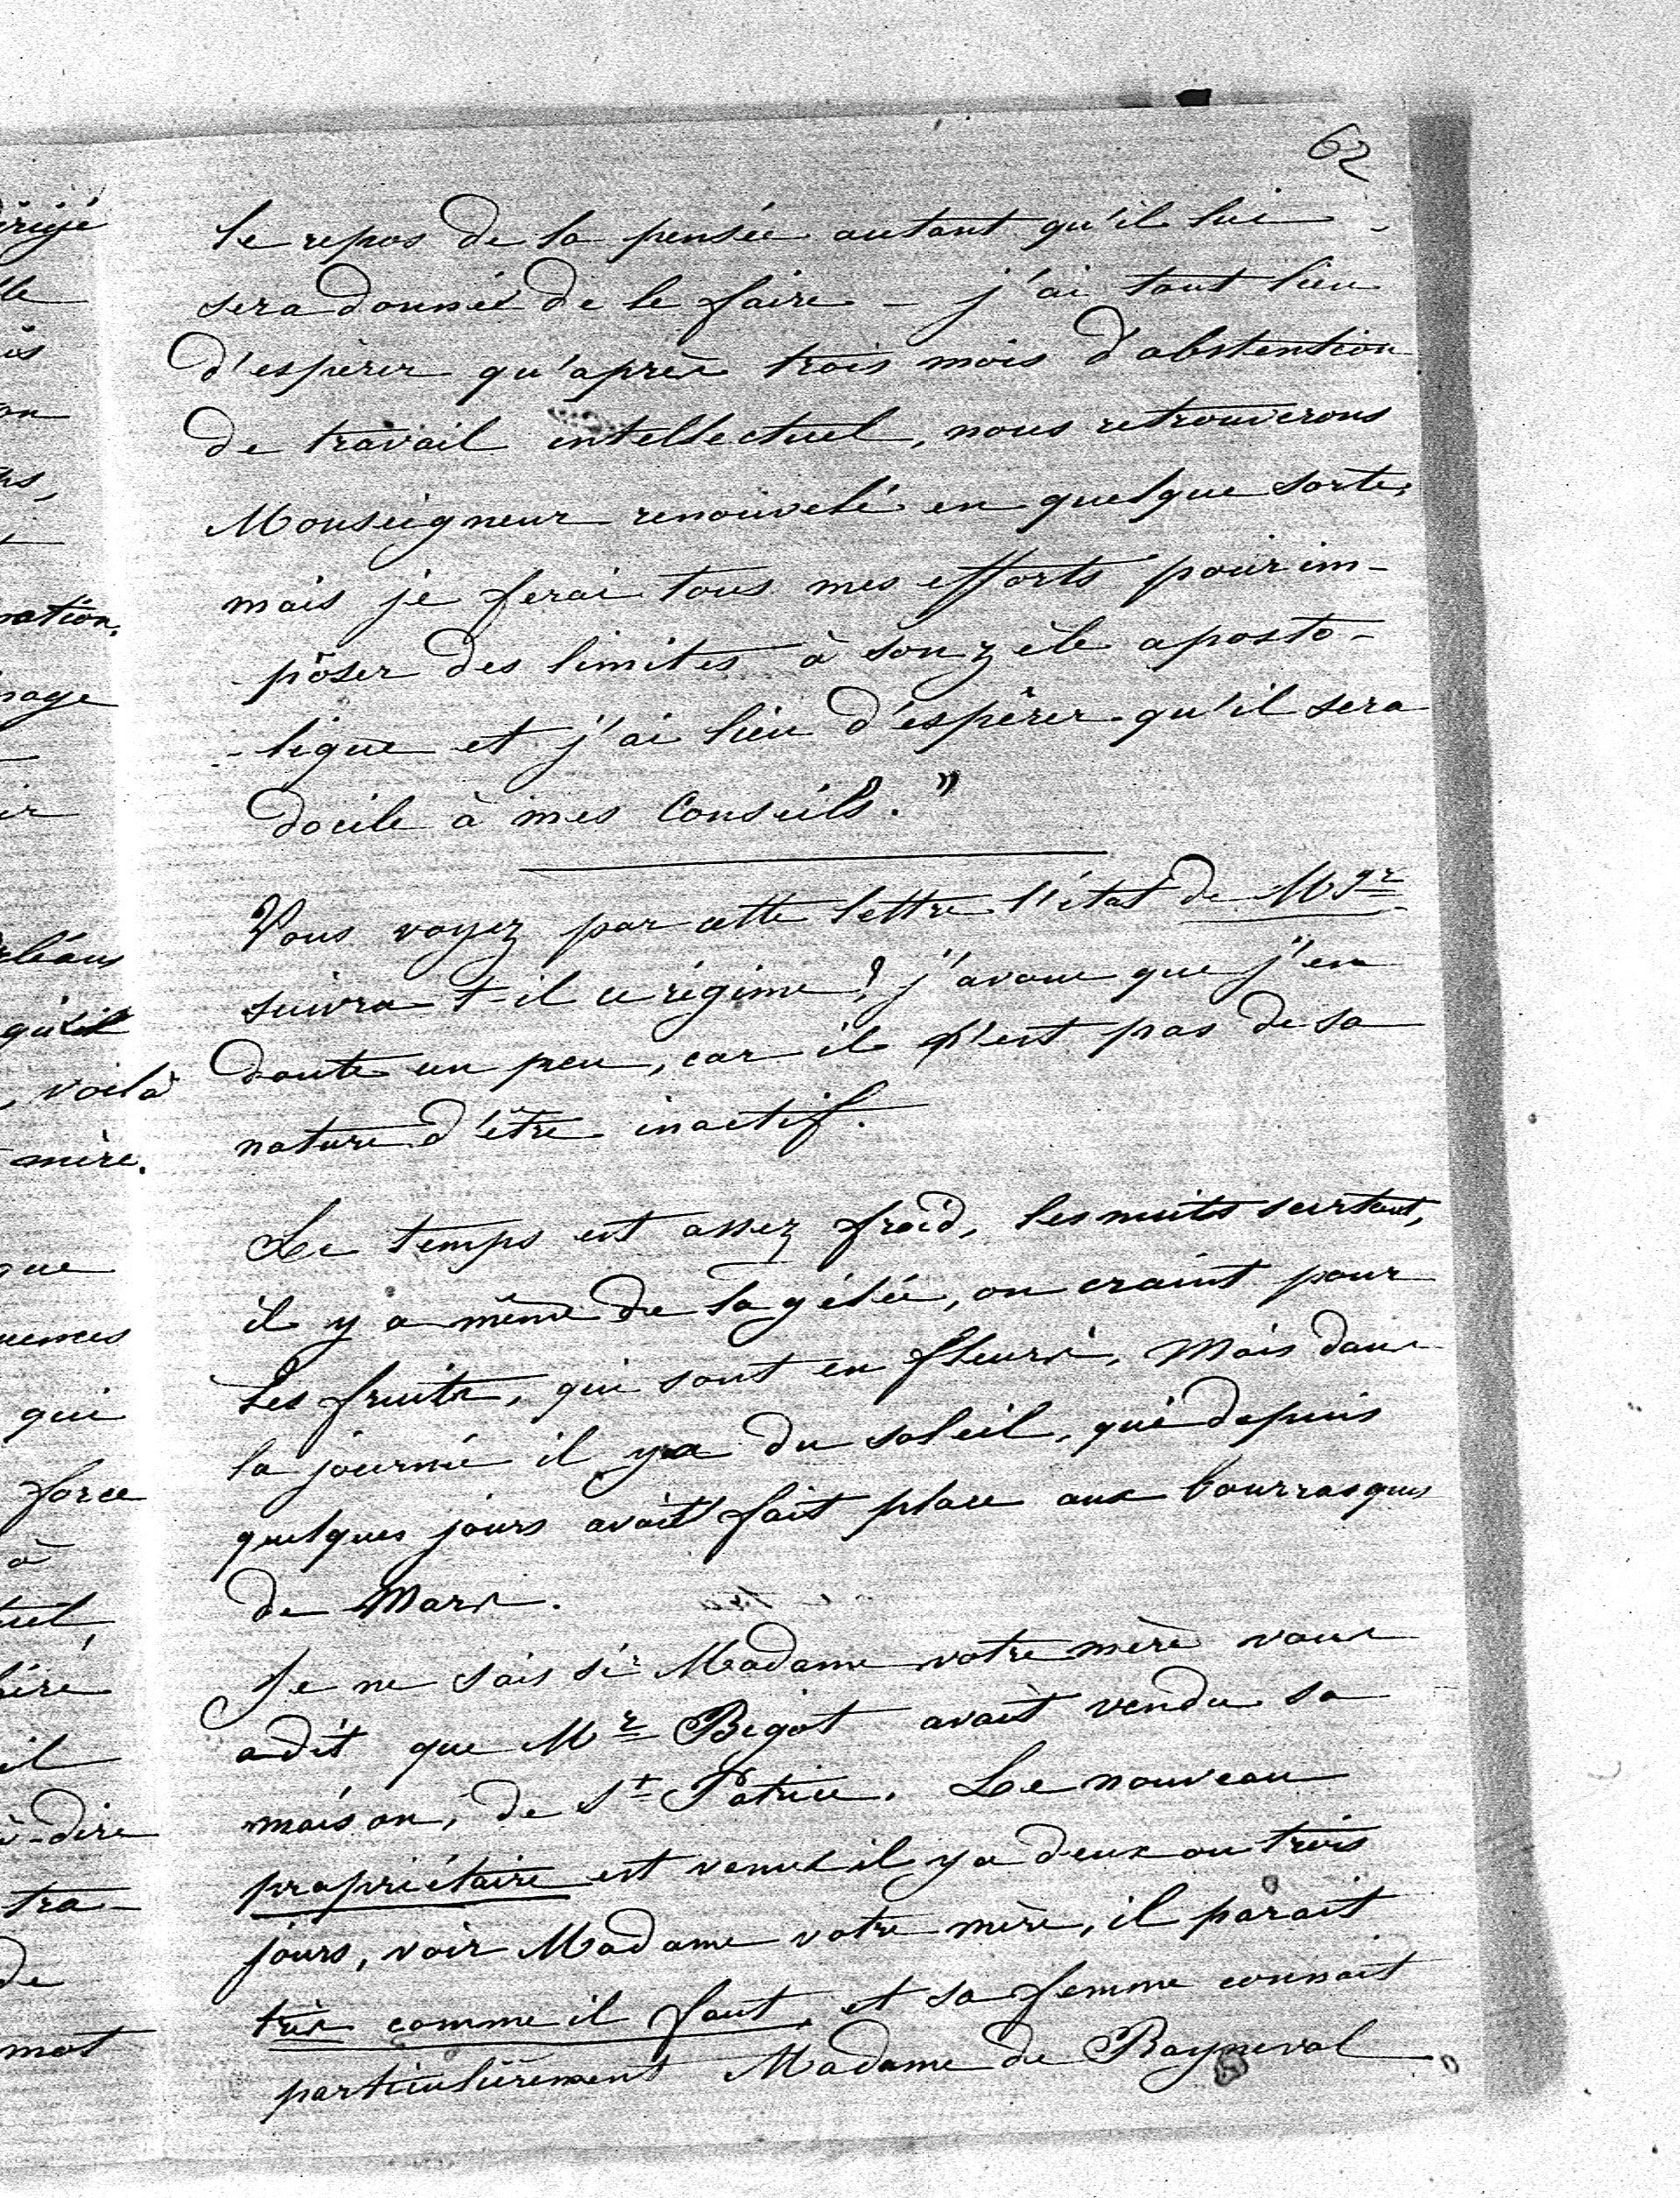 62
le repos de la pensée autant qu'il lui
sera donnée de le faire - j'ai tout lieu
d'espérer qu'après trois mois d'abstention
de travail intellectuel, nous retrouverons
Monseigneur renouvelé en quelque sorte,
mais je ferai tous mes efforts pour im-
-pôser des limites à son zèle aposto-
-lique et j'ai lieu d'espérer qu'il sera
docile à mes Conseils."
Vous voyez par cette lettre l'état de Mgr
suivra t-il ce régime? j'avoue que j'en
doute un peu, car il n'est pas de sa
nature d'être inactif.
Le temps est assez froid, les nuits surtout,
il y a même de la gélée, on craint pour
les fruits, qui sont en fleurs, Mais dans
la journée il y a du soleil, qui depuis
quelques jours avait fait place aux bourrasques
de Mars.
Je ne sais si Madame votre mère vous
a dit que Mr Bigot avait vendu sa
maison, de St Patrice. Le nouveau
propriétaire est venu il y a deux ou trois
jours, voir Madame votre mère, il parait
très comme il faut, et sa femme connait
particulièrement Madame de Rayneval
érigé
lle
on
ns,
nation.
nage
ir
rléans
qu'il
, voilà
mère.
que
uences
qui
force
à
tuel,
béré
il
à-dire
tra-
de
mot